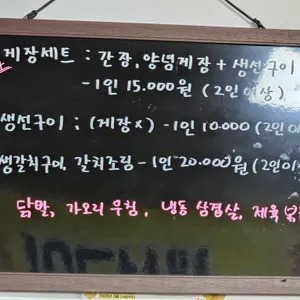 게장세트 : 간장, 양념게장 + 생선구이
- 1인 15.000원 (2인이상)
생선구이 : (게장x) - 1인 10.000 (2인이
생갈치구이, 갈치조림 - 1인 20.000원 (2인이
닭발, 가오리 무침, 냉동 삼겹살, 제육